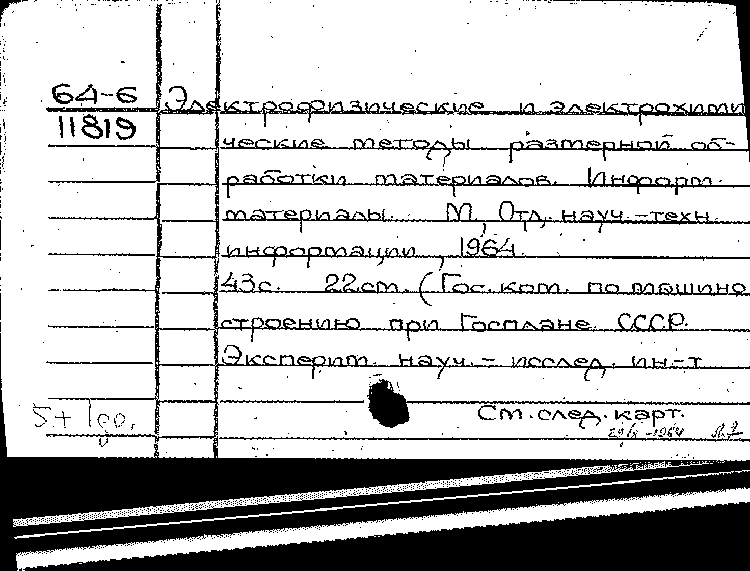 64-6
11819
Электрофизические и электрохими
ческие методы размерной об-
работки материалов. Информ.
материалы. М., Отд. науч.-техн.
информации, 1964.
43с. 22см. (Гос. ком. по машино
строению при Госплане СССР.
Эксперим. науч.-исслед. ин-т
См. след. карт.
5+1до.